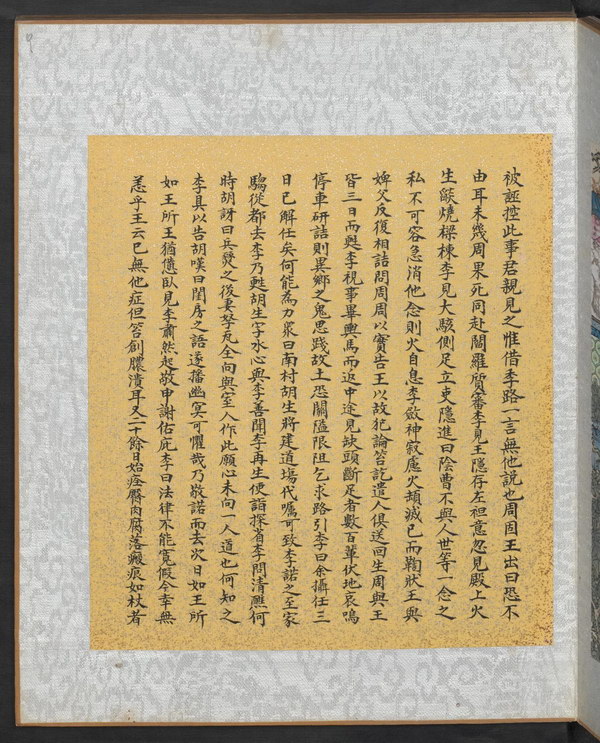 被誣控此事君親見之惟借季路一言無他說也周固王出曰恐不
由耳未幾周果死同赴閻羅質審李見王隱存左袒意忽見殿上火
生燄燒樑棟李見大駭側足立吏隱進曰陰曹不與人世等一念之
私不可容急消他念則火自息李斂神寂慮火頓滅已而鞫狀王與
婢父反復相詰問周周以實告王以故犯論笞訖遣人俱送回生周與王
皆三日而甦李視事畢輿馬而返中途見缺頭斷足者數百輩伏地哀鳴
停車研詰則異鄉之鬼思踐故土恐關隘限阻乞求路引李曰余攝任三
日已解任矣何能為力衆曰南村胡生將建道場代囑可致李諾之至家
騶從都去李乃甦胡生字水心與李善聞李再生便詣探省李問清醮何
時胡訝曰兵燹之後妻孥瓦全向與室人作此願心未向一人道也何知之
李具以告胡嘆曰閨房之語遂播幽冥可懼哉乃敬諾而去次日如王所
如王所王猶憊臥見李肅然起敬申謝佑庇李曰法律不能寬假今幸無
恙乎王云已無他症但笞創膿潰耳又二十餘日始痊臀肉腐落瘢痕如杖者